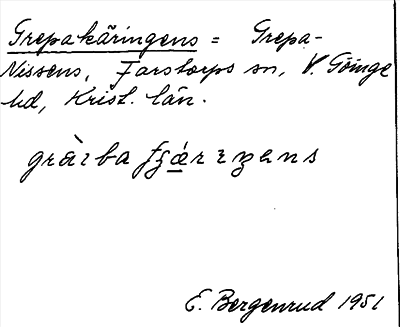 Grepakäringens = Grepa-
Nissens, Farstorps sn, V. Göinge
hd, Krist. län.
E. Bergenrud 1951